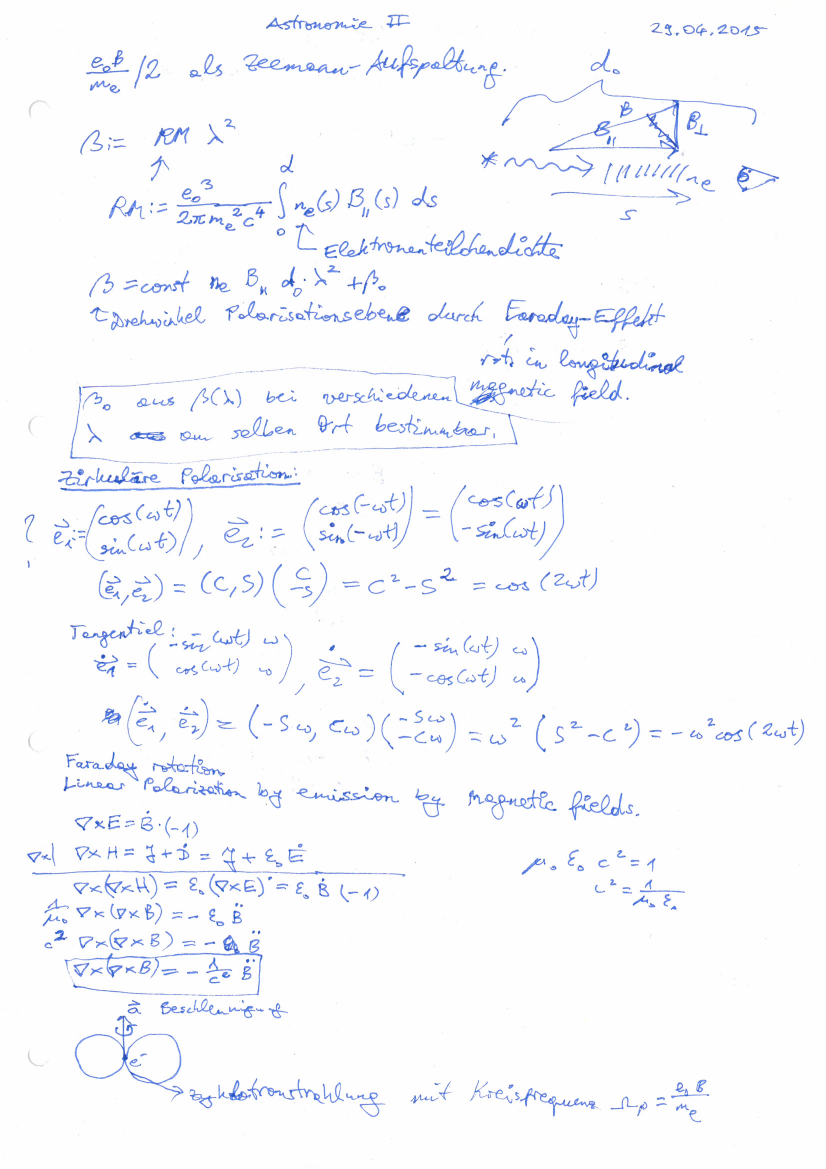 Astronomie II 29.04.2015
e₀B/mₑ /2 als Zeemaan-Aufspaltung.
d₀
B
B∥ B⊥
nₑ
s
β := RM λ²
RM := e₀³/(2π mₑ² c⁴) ∫₀ᵈ nₑ(s) B∥(s) ds
Elektronenteilchendichte
β = const nₑ B∥ d₀ · λ² + β₀
Drehwinkel Polarisationsebene durch Faraday-Effekt
rot. in longitudinal
magnetic field.
β₀ aus β(λ) bei verschiedenen
λ am selben Ort bestimmbar.
Zirkuläre Polarisation:
? e⃗₁ := (cos(ωt) / sin(ωt)), e⃗₂ := (cos(-ωt) / sin(-ωt)) = (cos(ωt) / -sin(ωt))
(e⃗₁, e⃗₂) = (C, S) (C / -S) = C² - S² = cos(2ωt)
Tangentiel:
ė⃗₁ = (-sin(ωt) ω / cos(ωt) ω), ė⃗₂ = (-sin(ωt) ω / -cos(ωt) ω)
(ė⃗₁, ė⃗₂) = (-Sω, Cω) (-Sω / -Cω) = ω² (S² - C²) = -ω² cos(2ωt)
Faraday rotation
Linear Polarization by emission by magnetic fields.
∇×E = Ḃ·(-1)
∇×| ∇×H = J + Ḋ = J + ε₀ Ė
μ₀ ε₀ c² = 1
c² = 1/(μ₀ ε₀)
∇×(∇×H) = ε₀ (∇×E)˙ = ε₀ B̈ (-1)
1/μ₀ ∇×(∇×B) = - ε₀ B̈
c² ∇×(∇×B) = - B̈
∇×(∇×B) = - 1/c² B̈
a⃗ Beschleunigung
e⁻
Zyklotronstrahlung mit Kreisfrequenz Ωp = e₀B/mₑ